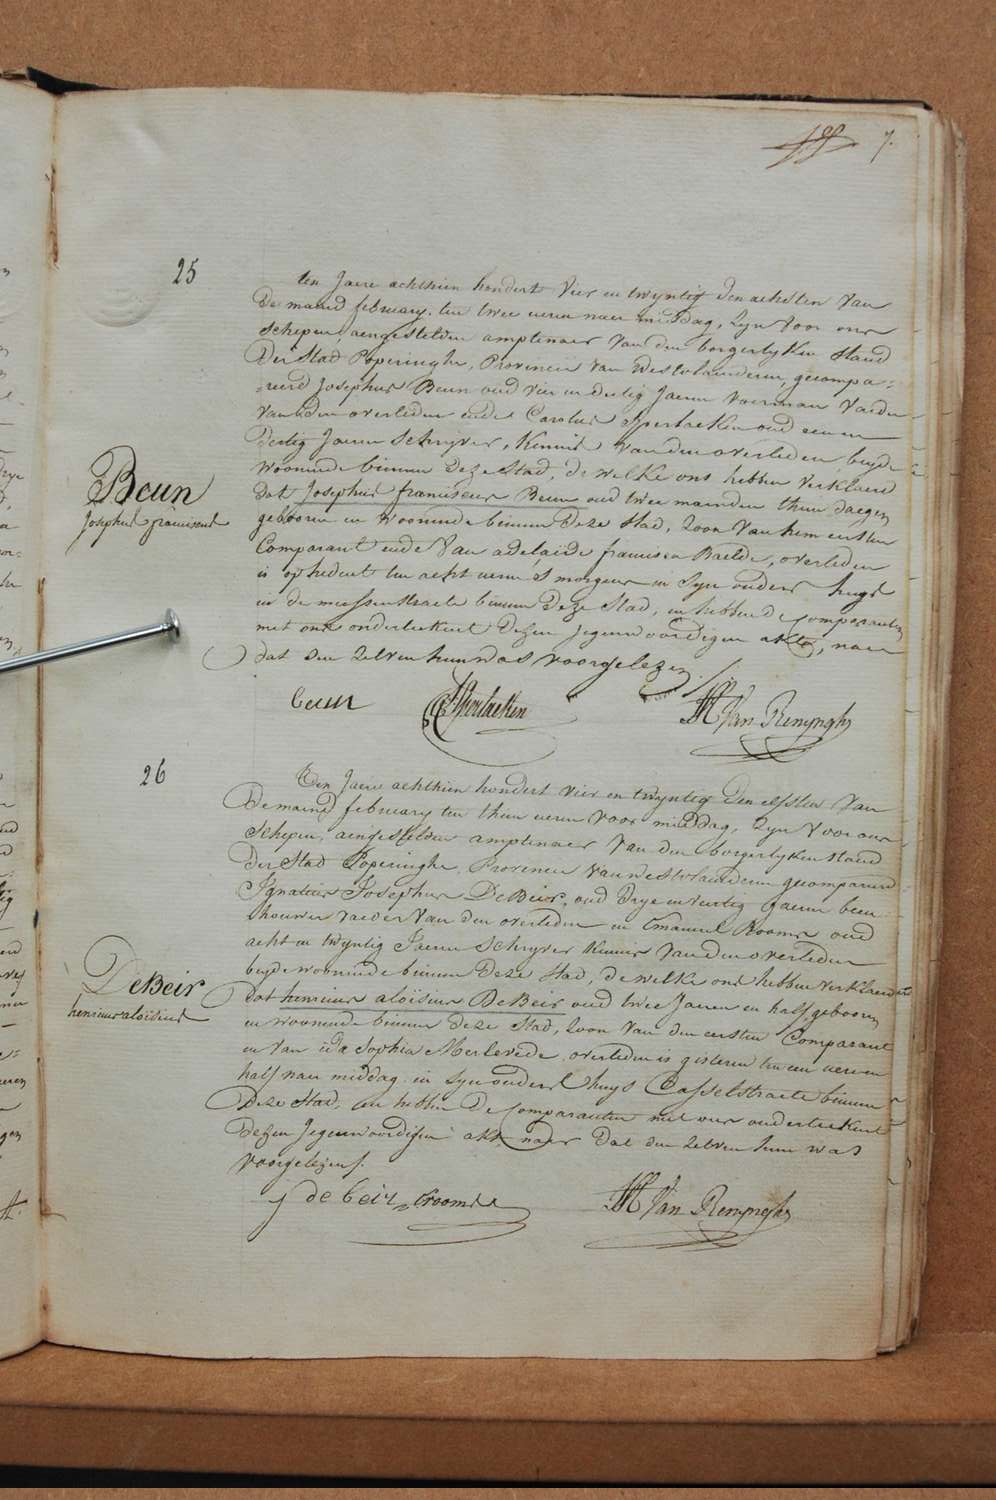 7.
25
ten Jaere achthien hondert vier en twyntig den achsten van
De maend february, ten twee ueren naer middag, Zyn voor ons
schepen, aengestelden amptenaer van den borgerlyken stand
Der Stad Poperinghe, Provincie van Westvlaenderen, gecompa=
=reerd Josephus Beun oud vier en dertig Jaeren voerman vader
van den overleden ende Carolus Sperlaeken oud een en
dertig Jaeren schryver, Kennis van den overleden beyde
woonende binnen Deze Stad, de welke ons hebben verklaerd
dat Josephus franciscus Beun oud twee maenden thien daegen
gebooren en woonende binnen deze Stad, zoon van hem eersten
Comparant ende van adelaïde francisca Baelde, overleden
is op heden ten acht ueren s'morgens in syn ouders huys
in de meessenstraete binnen Deze Stad, en hebben de comparanten
met ons onderteekent Dezen jegenwoordigen akte, naer
dat den zelven hun was voorgelezen
Beun
Josephus franciscus
beun
C Sperlaeken
Van Renynghe
26
Ten Jaere achthien hondert vier en twyntig den elfsten van
De maend february ten thien ueren voor middag, Zyn voor ons
Schepen, aengestelden amptenaer van den borgerlyken stand
Der Stad Poperinghe, Provincie van Westvlaenderen gecompareerd
Ignatius Josephus DeBeir, oud Drye en veertig Jaeren been
houwer vaeder van den overleden en Emanuel Rooms oud
acht en twyntig Jaeren schryver kennis van den overleden
beyde woonende binnen deze Stad, de welke ons hebben verklaerd
dat henricus aloïsius DeBeir oud twee Jaeren en half gebooren
en woonende binnen deze Stad, zoon van den eersten Comparant
en van ida Sophia Merlevede, overleden is gisteren ten een uere en
half naer middag in syn ouders huys Casselstraete binnen
Deze Stad, en hebben de Comparanten met ons onderteekent
dezen Jegenwoordigen akte, naer dat den zelven hun was
voorgelezen.
DeBeir
henricus aloïsius
j de beir
E rooms
Van Renynghe